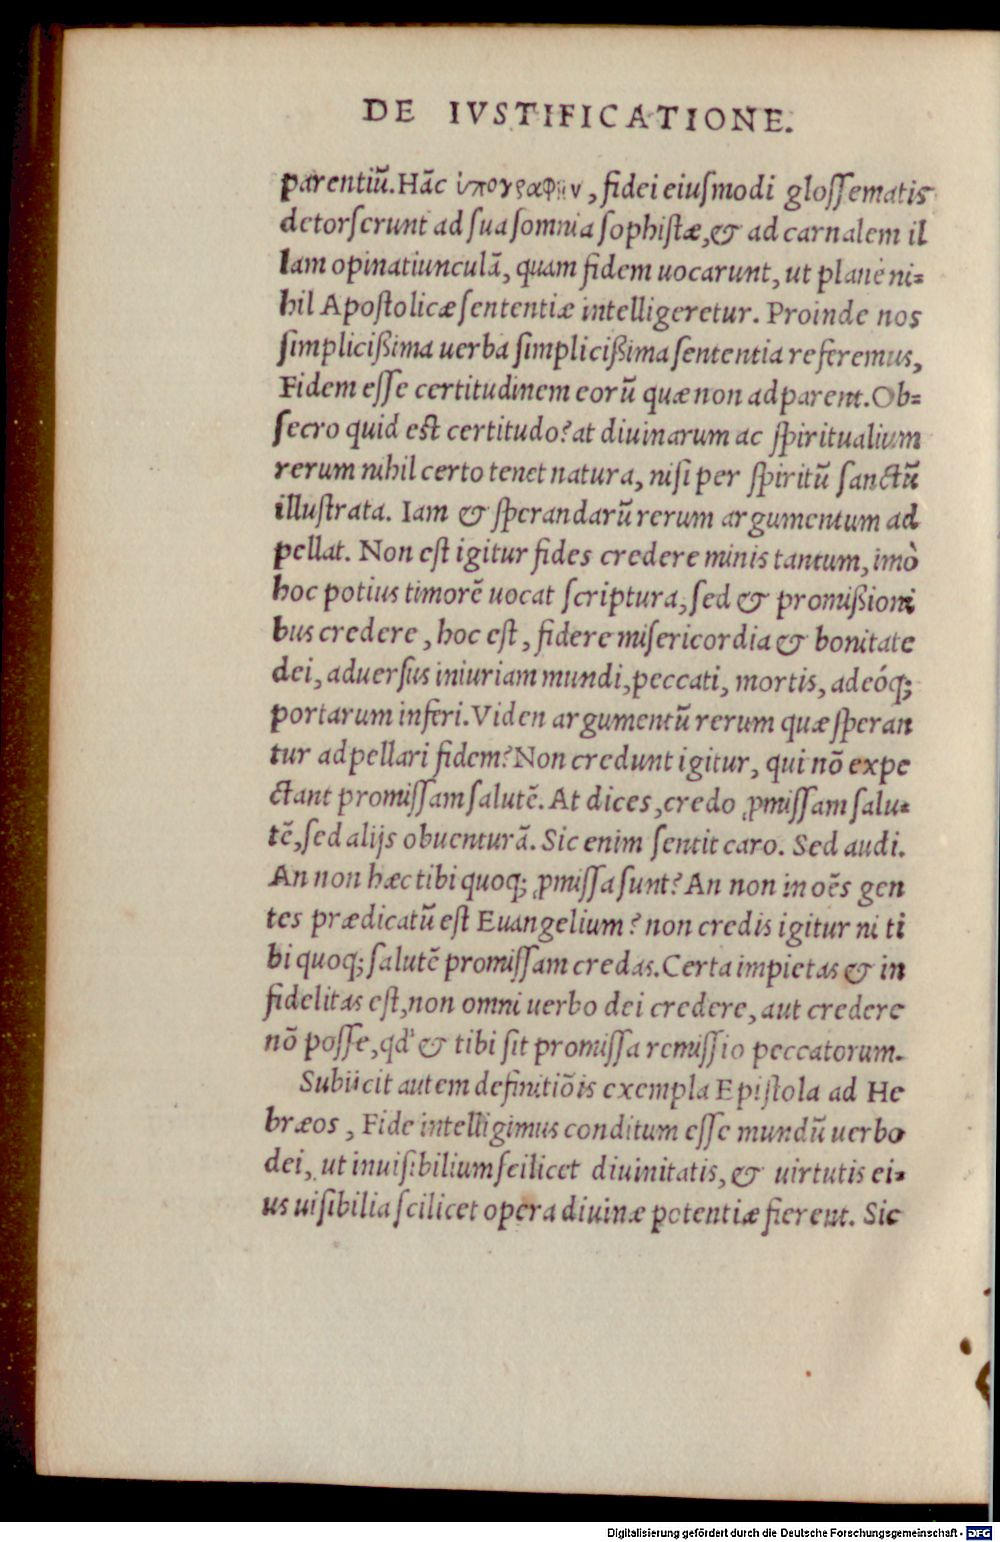 DE IVSTIFICATIONE.
parentiũ. Hãc ὑπογραφὴν, fidei eiusmodi glossematis
detorserunt ad sua somnia sophistæ, & ad carnalem il
lam opinatiunculã, quam fidem uocarunt, ut planè ni=
hil Apostolicæ sententiæ intelligeretur. Proinde nos
simplicißima uerba simplicißima sententia referemus,
Fidem esse certitudinem eorũ quæ non adparent. Ob=
secro quid est certitudo? at diuinarum ac spiritualium
rerum nihil certo tenet natura, nisi per spiritũ sanctũ
illustrata. Iam & sperandarũ rerum argumentum ad
pellat. Non est igitur fides credere minis tantum, imò
hoc potius timorẽ uocat scriptura, sed & promißioni
bus credere, hoc est, fidere misericordia & bonitate
dei, aduersus iniuriam mundi, peccati, mortis, adeóq;
portarum inferi. Viden argumentũ rerum quæ speran
tur adpellari fidem? Non credunt igitur, qui nõ expe
ctant promissam salutẽ. At dices, credo ꝓmissam salu=
tẽ, sed alijs obuenturã. Sic enim sentit caro. Sed audi.
An non hæc tibi quoq; ꝓmissa sunt? An non in oẽs gen
tes prædicatũ est Euangelium? non credis igitur ni ti
bi quoq; salutẽ promissam credas. Certa impietas & in
fidelitas est, non omni uerbo dei credere, aut credere
nõ posse, qd' & tibi sit promissa remissio peccatorum.
Subijcit autem definitiõis exempla Epistola ad He
bræos, Fide intelligimus conditum esse mundũ uerbo
dei, ut inuisibilium scilicet diuinitatis, & uirtutis ei=
us uisibilia scilicet opera diuinæ potentiæ fierent. Sic
Digitalisierung gefördert durch die Deutsche Forschungsgemeinschaft - DFG